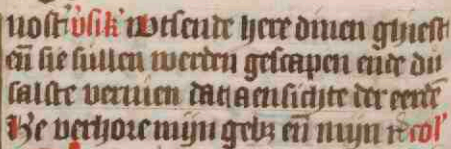 nost v̾sik̾ wtsende here dinen ghiest
en̄ sie sullen werden gescapen ende du
salste vernuen dat aensichte der eerdē
He verhore mijn gebꝫ en̄ mijn r̄ col̾